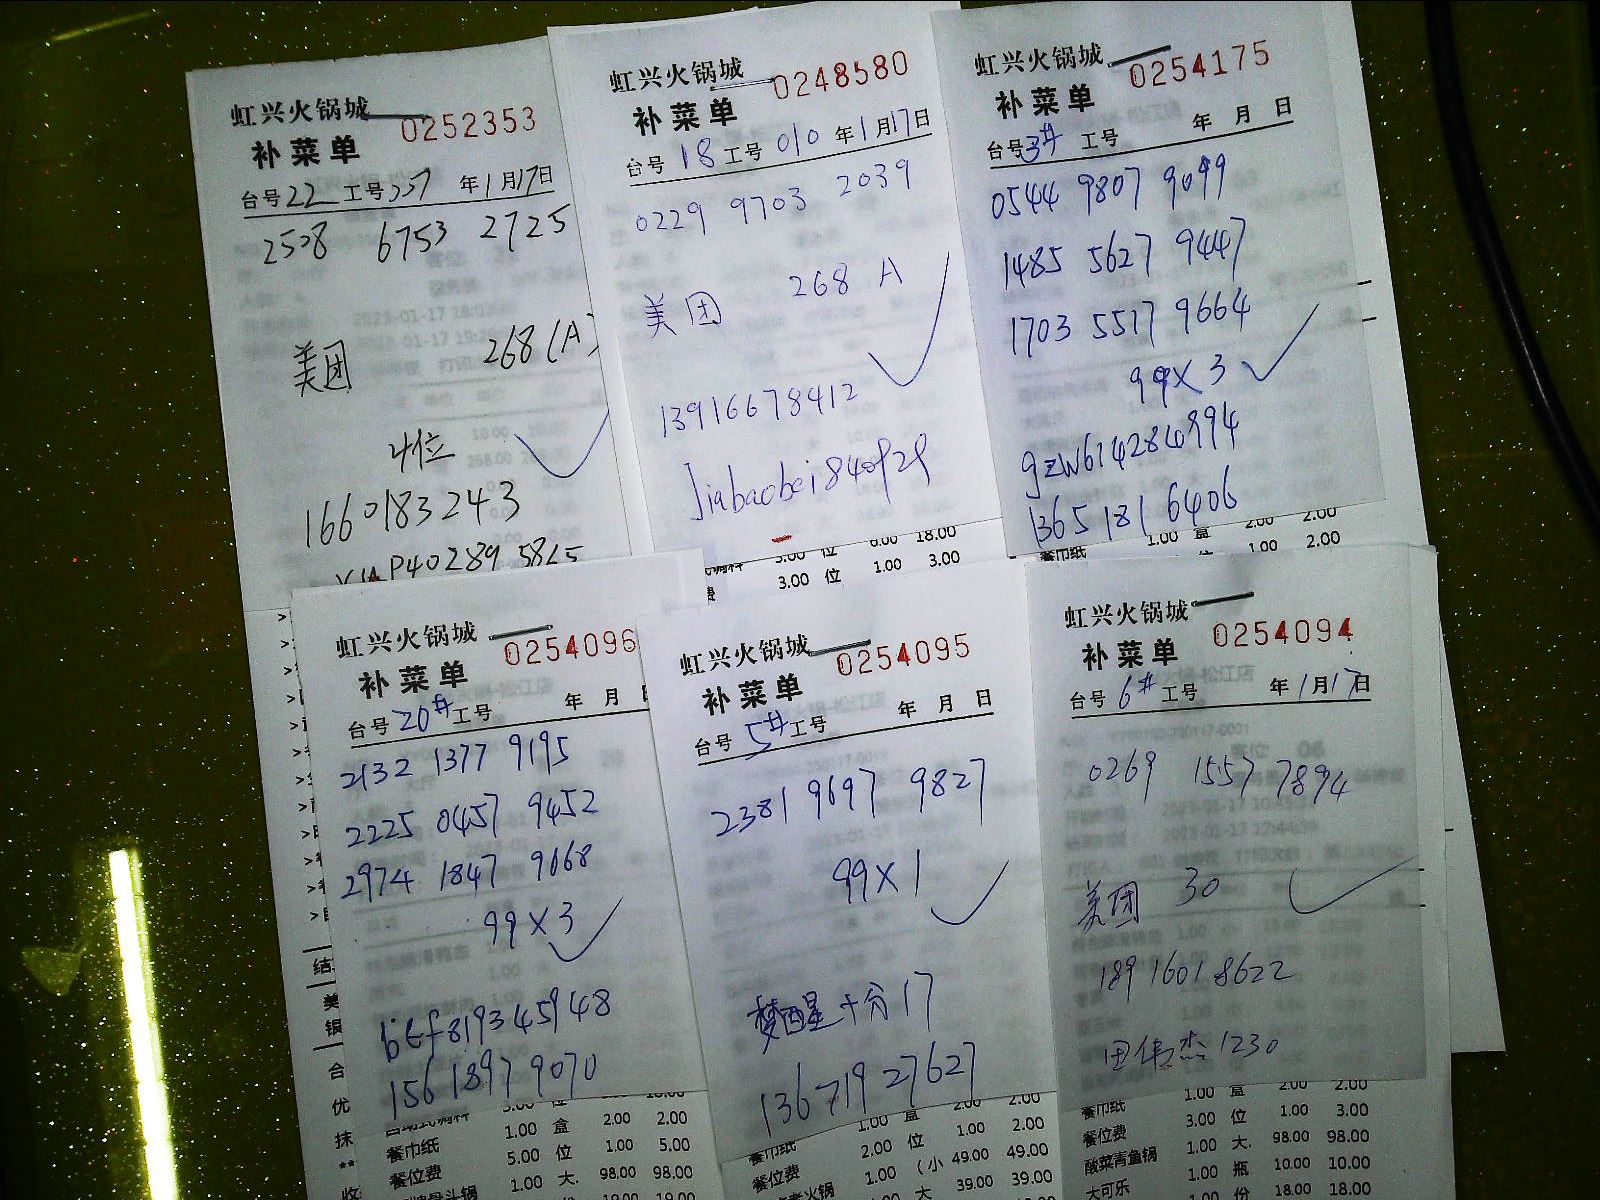 虹兴火锅城 0252353
补菜单
台号22 工号357 年1月17日
2508 6753 2725
美团 268(A)
4位
1660183243
虹兴火锅城 0248580
补菜单
台号18工号010年1月17日
0229 9703 2039
美团 268 A
13916678412
虹兴火锅城 0254175
补菜单
台号3# 工号 年 月 日
0544 9807 9099
1485 5627 9447
1703 5517 9664
99X3
gzw614284894
1365 181 6406
餐巾纸 1.00 盒 2.00 2.00
1.00 2.00
3.00 位 6.00 18.00
费 3.00 位 1.00 3.00
虹兴火锅城 0254096
补菜单
台号20#工号 年 月
2132 1377 9195
2225 0457 9452
2974 1847 9068
99X3
btf819345948
156 1897 9070
餐巾纸 1.00 盒 2.00 2.00
餐位费 5.00 位 1.00 5.00
1.00 大. 98.00 98.00
虹兴火锅城 0254095
补菜单
台号5#工号 年 月 日
2381 9697 9827
99X1
梦酉星十分17
136719 27627
餐巾纸 1.00 盒 2.00 2.00
餐位费 2.00 位 1.00 2.00
1.00 (小 49.00 49.00
大 39.00 39.00
虹兴火锅城 0254094
补菜单
台号6# 工号 年1月17日
0269 1557 7894
美团 30
189 1601 8622
田伟杰1230
餐巾纸 1.00 盒 2.00 2.00
餐位费 3.00 位 1.00 3.00
酸菜青鱼锅 1.00 大. 98.00 98.00
大可乐 1.00 瓶 10.00 10.00
1.00 份 18.00 18.00